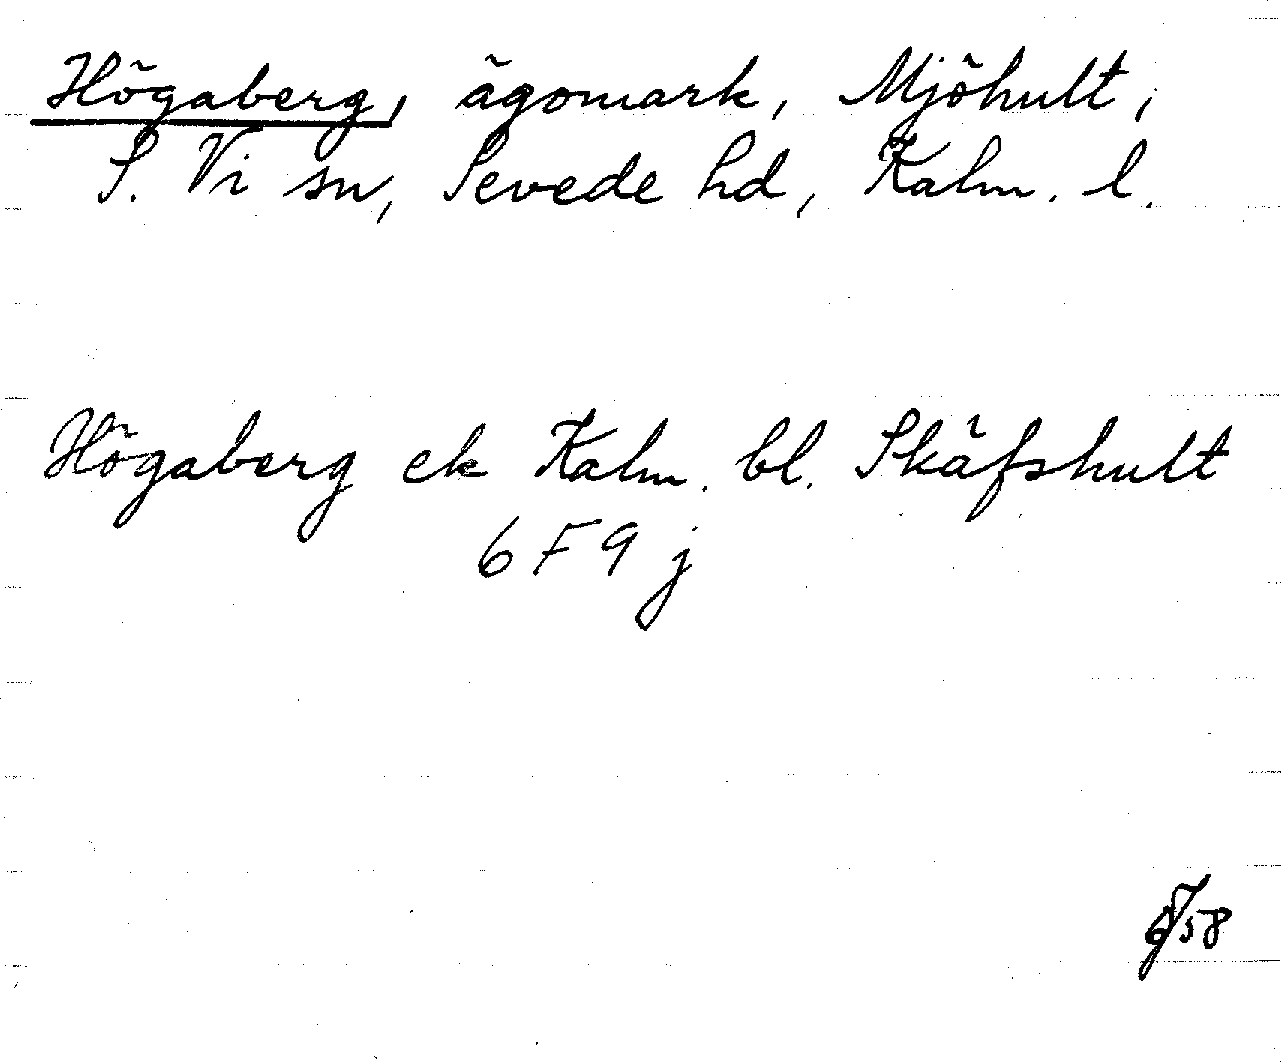 Högaberg, ägomark, Mjöhult,
S. Vi sn, Sevede hd, Kalm. l.
Högaberg ek Kalm. bl. Skäfshult
6F9j
58